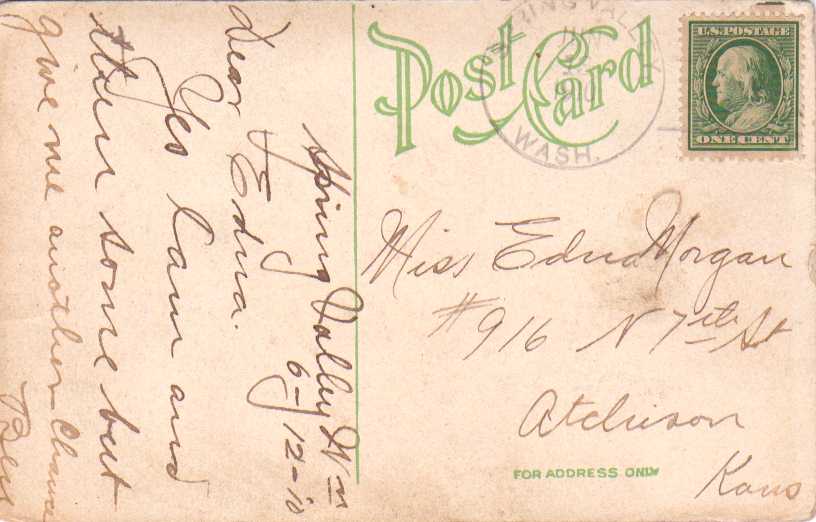 Spring Valley Wn
6-12-10
Dear Edna.
Yes I am and
then some but
give me another chance
Ben
Post Card
SPRING VALLEY
WASH.
U.S. POSTAGE
ONE CENT
Miss Edna Morgan
#916 N 7th St
Atchison
Kans
FOR ADDRESS ONLY